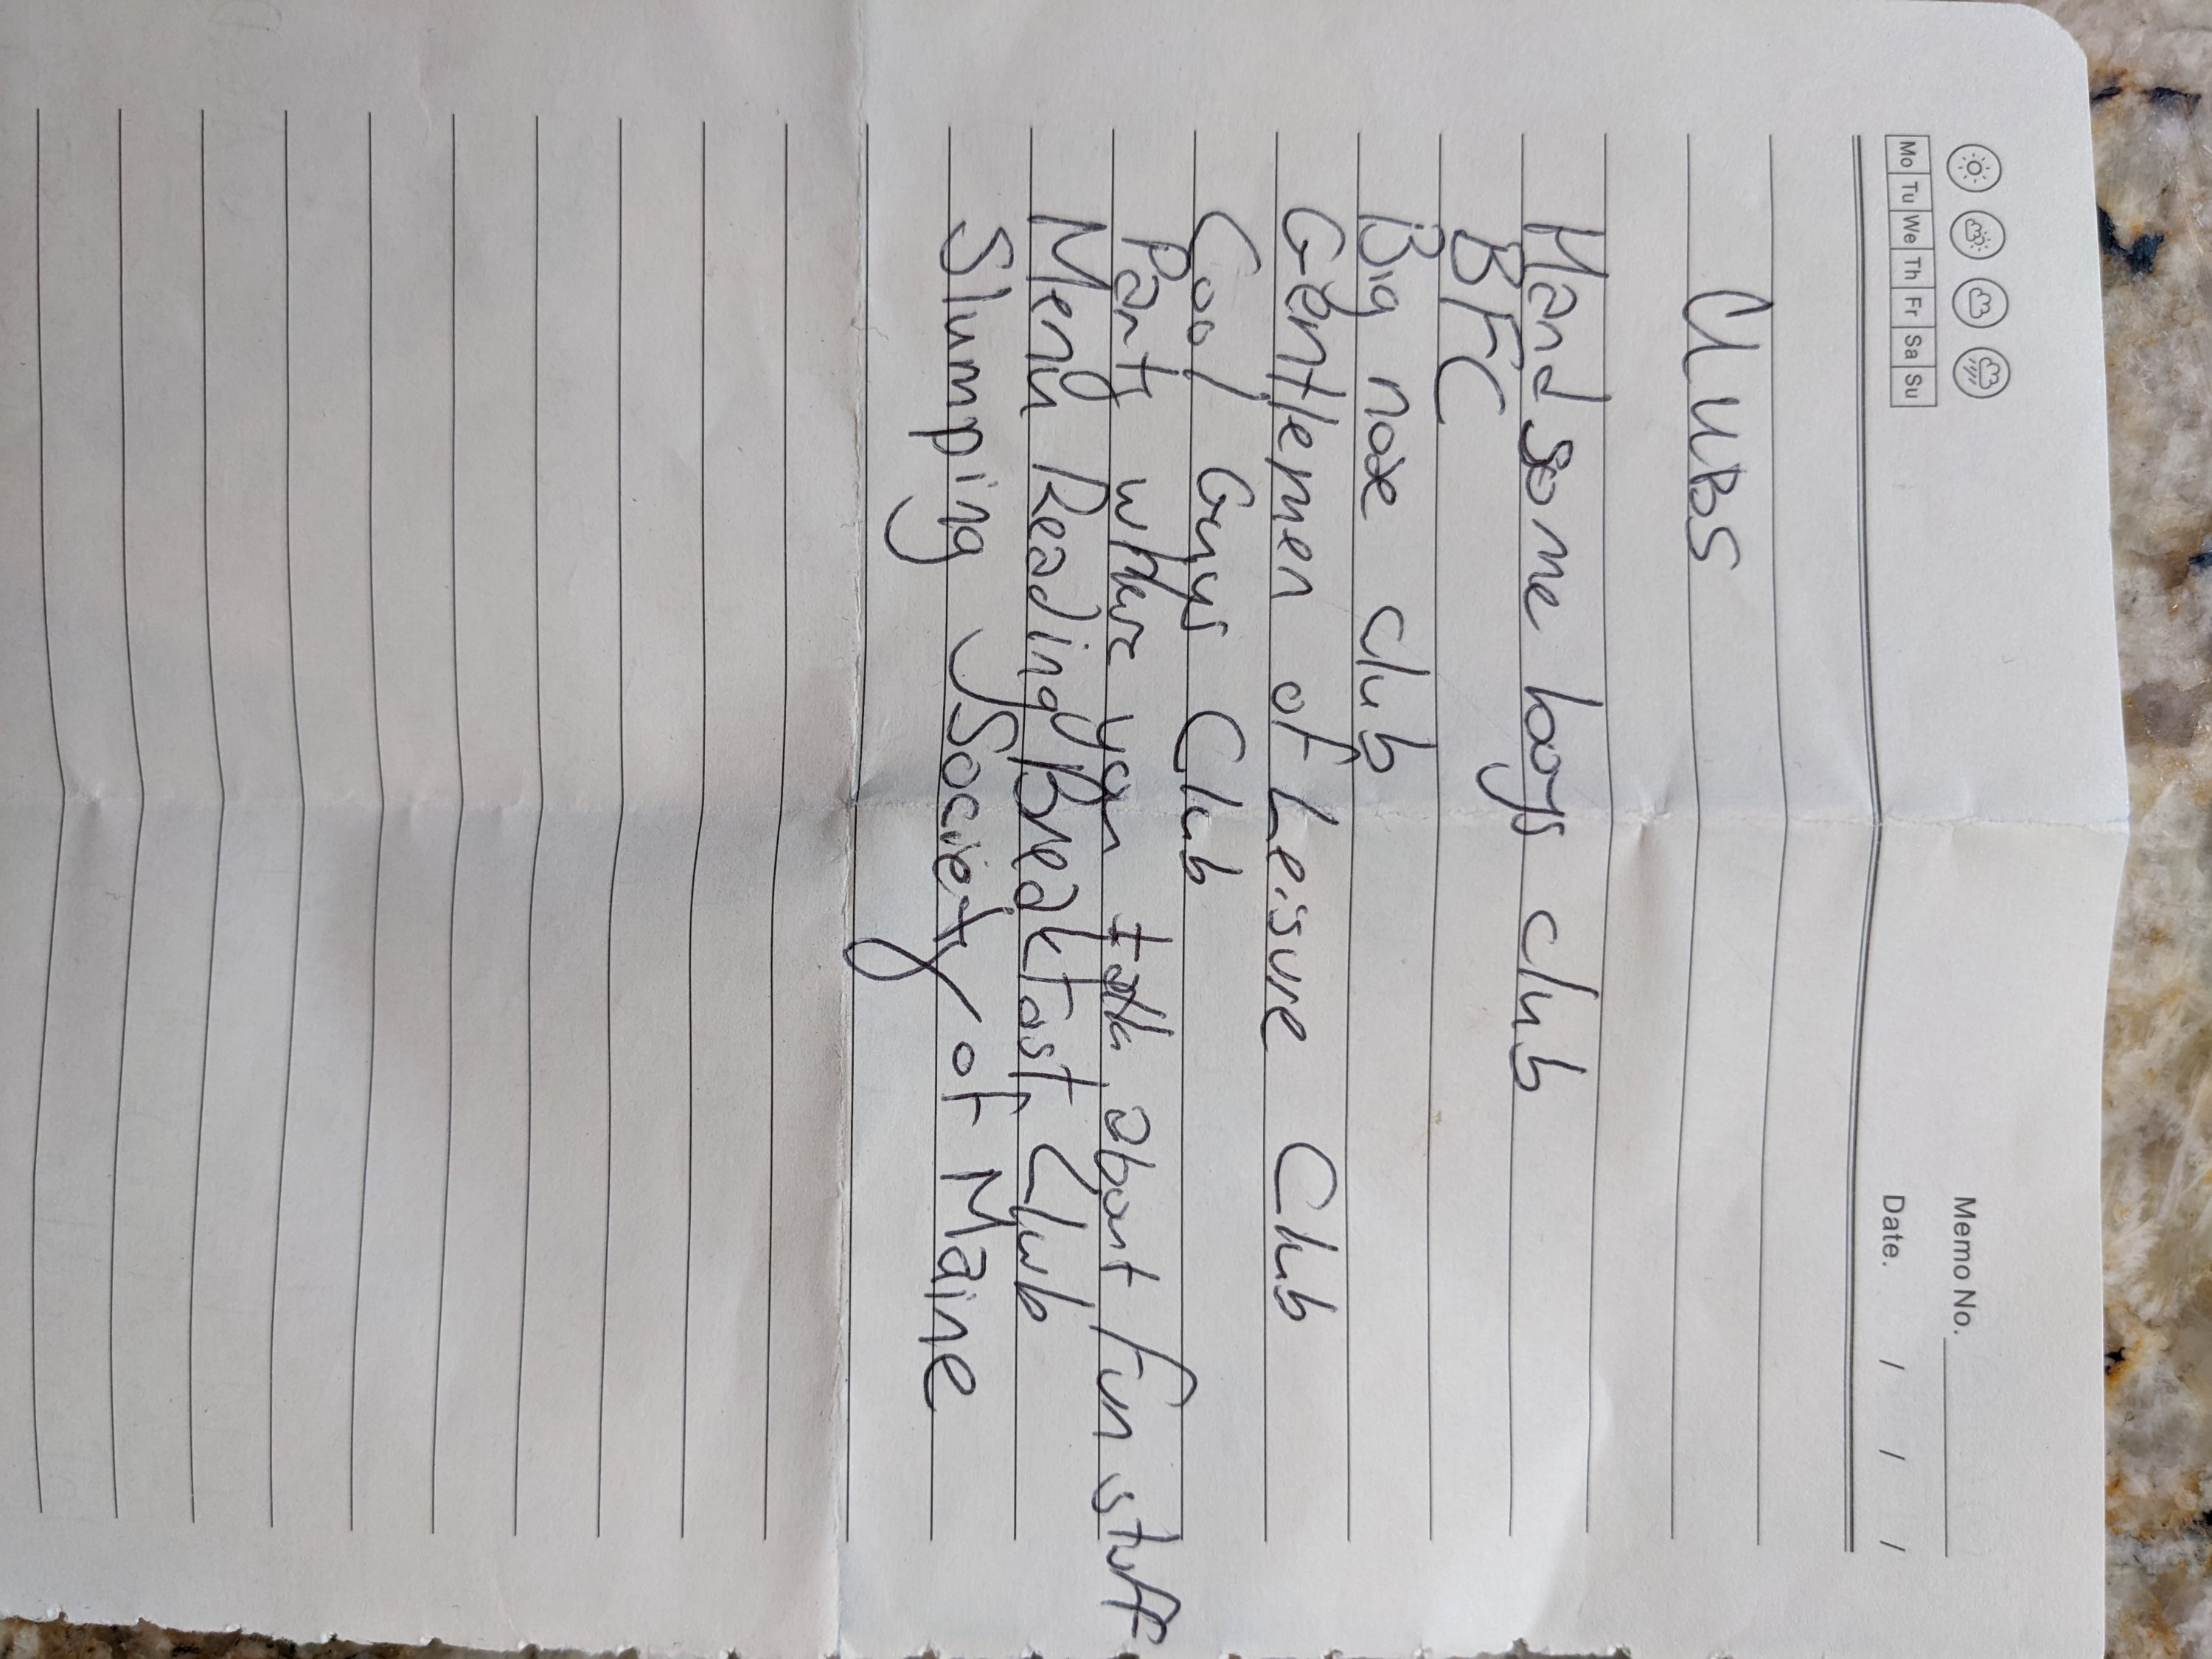 Memo No.
Mo Tu We Th Fr Sa Su
Date. / / /
CLUBS
Handsome boys club
BFC
Big nose club
Gentlemen of Leisure Club
Cool Guys Club
Party where you talk about fun stuff
Menu Reading Breakfast Club
Slumping Society of Maine